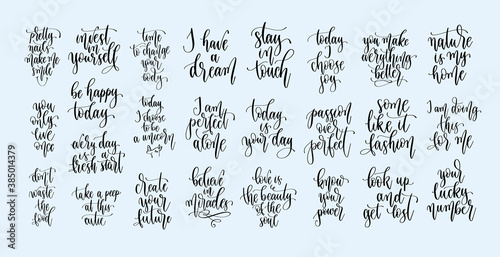 pretty
nails
make me
smile
invest
in
yourself
time
to change
your
body
I have
a
dream
stay
in
touch
today
I
choose
joy
you make
everything
better
nature
is my
home
you
only
live
once
be happy
today
every day
is a
fresh start
today
I choose
to be
a unicorn
I am
perfect
alone
today
is
your day
passion
over
perfect
some
like it
fashion
I am doing
this
for me
don't
waste
the
food
take a peep
at this
cutie
create
your
future
believe
in
miracles
love is
the beauty
of the
soul
know
your
power
look up
and
get lost
your
lucky
number
385014379